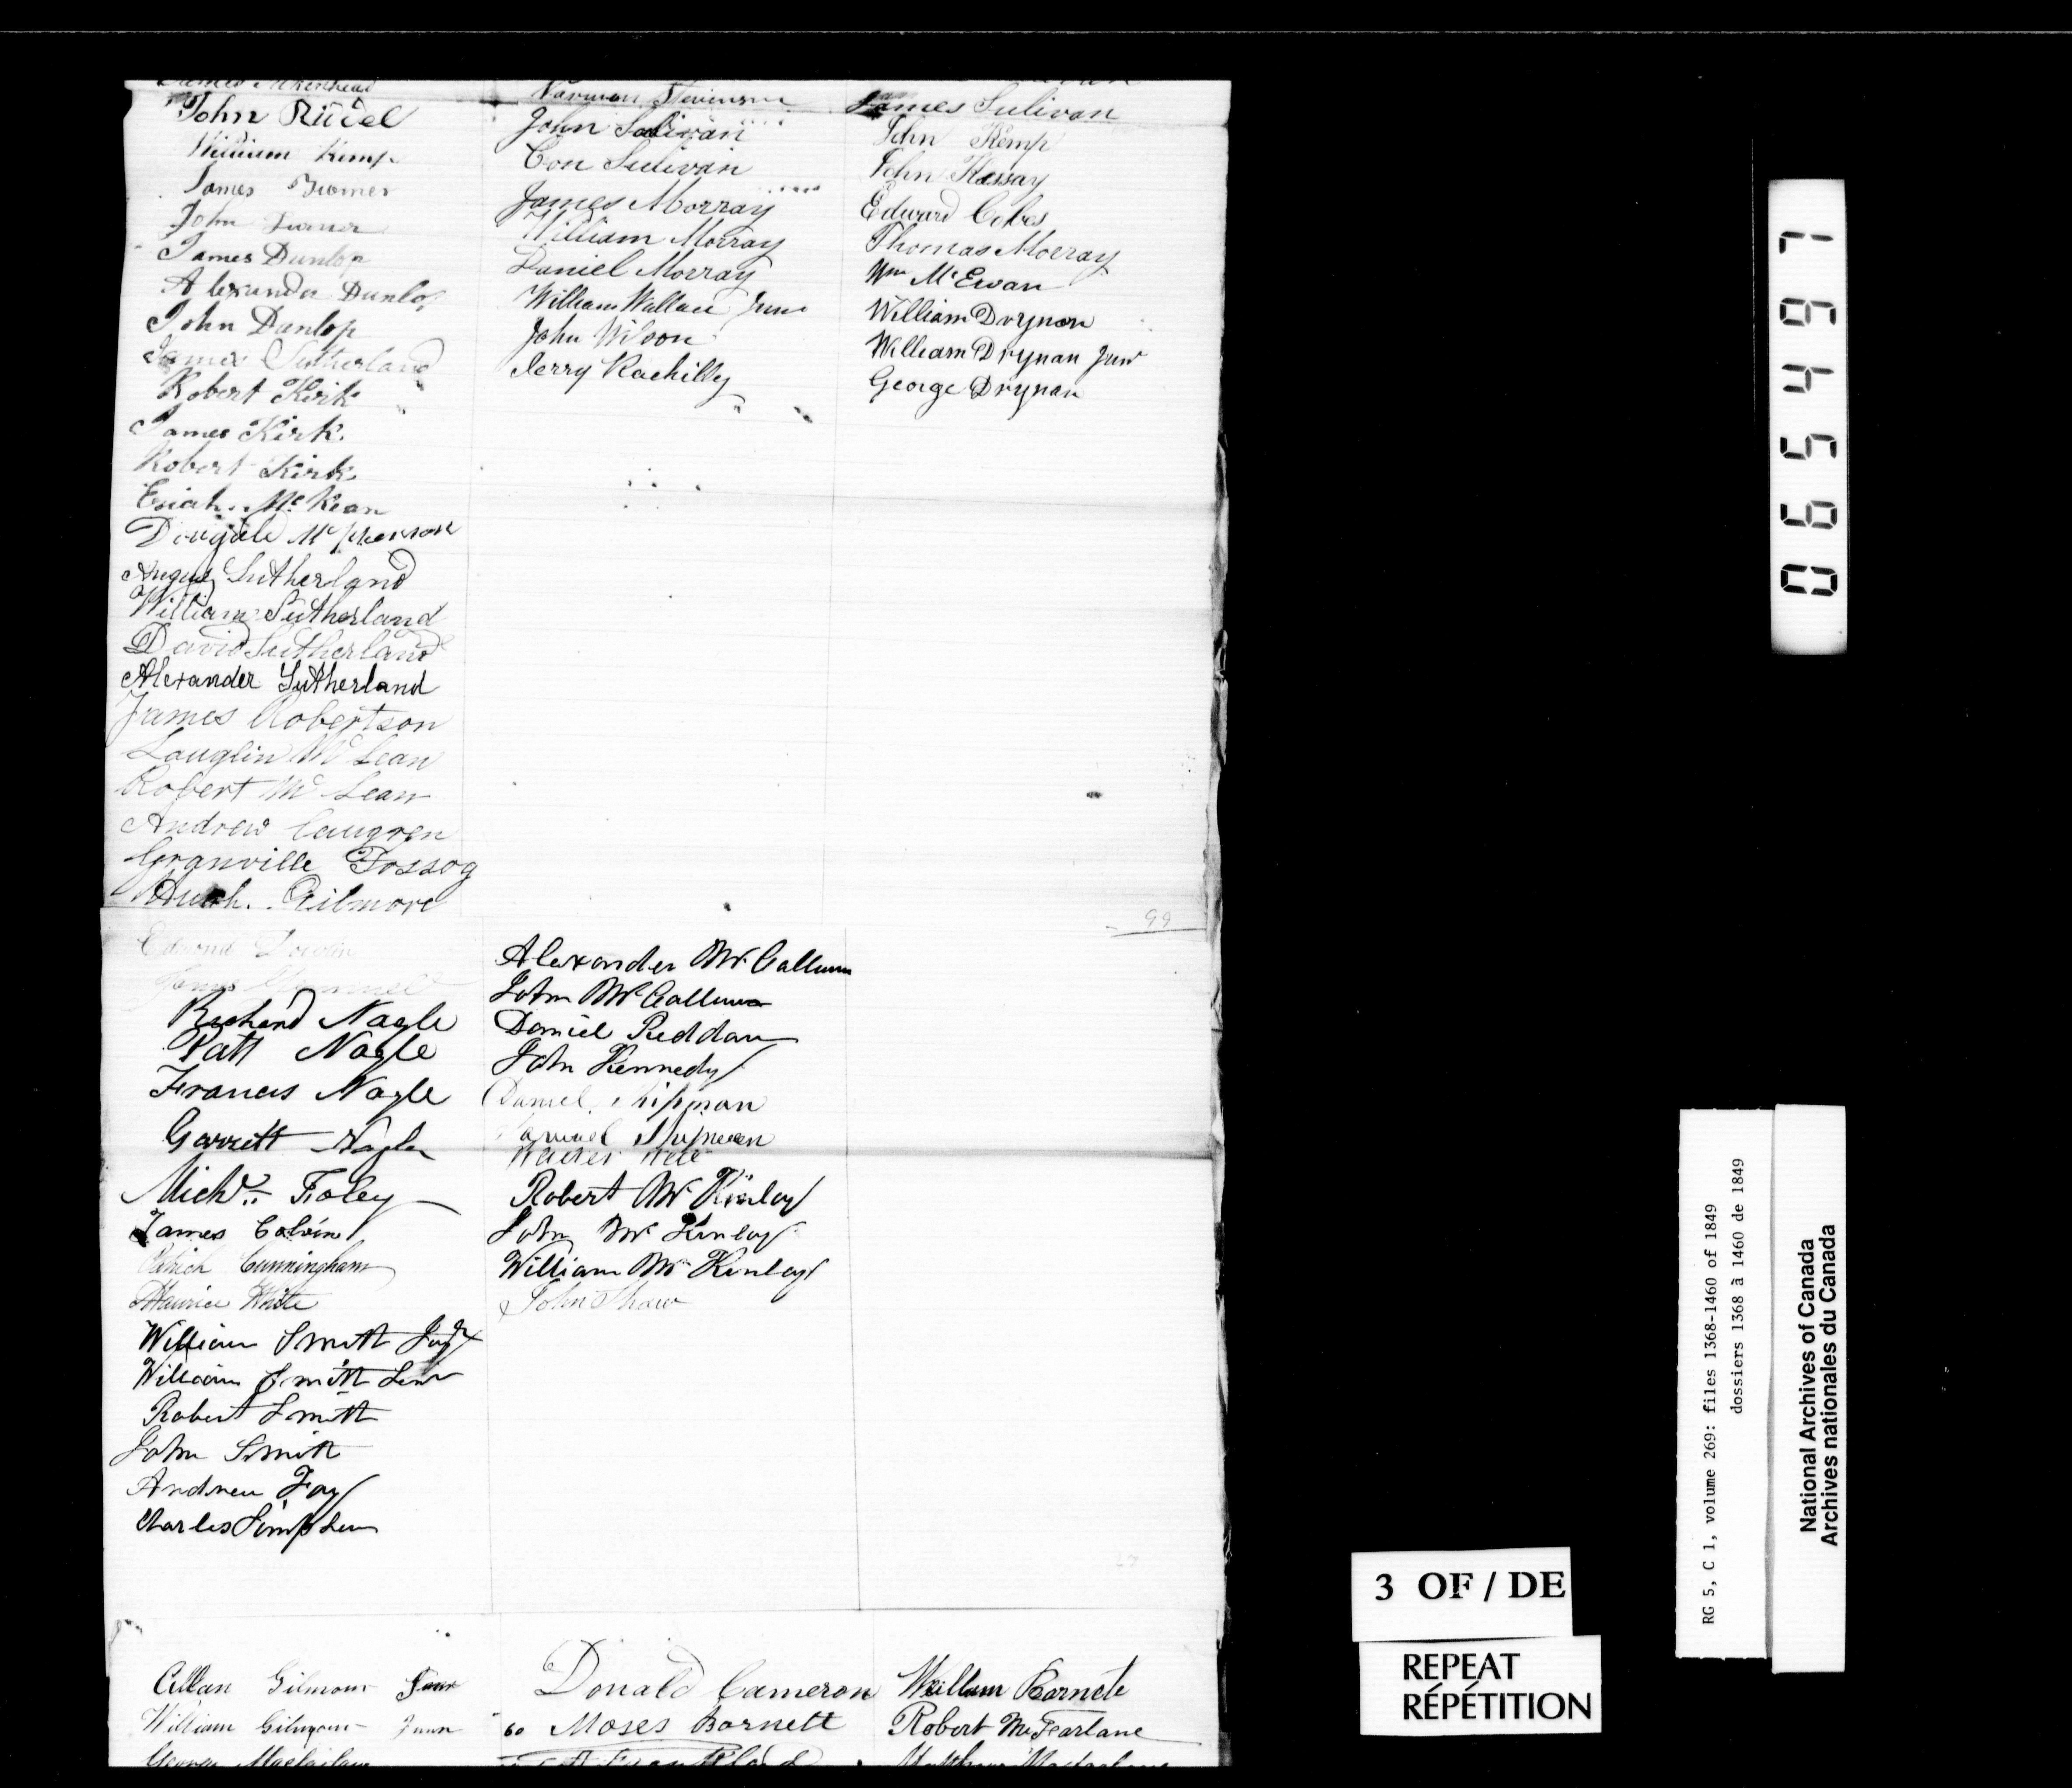 John Rudel
William Kemp
James Turner
John Turner
James Dunlop
Alexander Dunlop
John Dunlop
James Sutherland
Robert Kirk
James Kirk
Robert Kirk
McKean
Dougald McPherson
Angus Sutherland
William Sutherland
David Sutherland
Alexander Sutherland
James Robertson
Lauglin McLean
Robert McLean
Andrew Caugren
Granville Fossog
Hugh Gilmore
Norman Stevenson
John Sulivan
Con Sulivan
James Morray
William Morray
Daniel Morray
William Wallace Junr
John Wilson
Jerry Rachilly
James Sulivan
John Kemp
John Kassay
Edward
Thomas Morray
Wm McEwan
William Drynan
William Drynan Junr
George Drynan
99
Edmond
James
Richard Nagle
Patt Nagle
Francis Nagle
Garrett Nagle
Michl Foley
James Colvin
Patrick Cunningham
Maurice White
William Smith
William Smith Senr
Robert Smith
John Smith
Andrew Foy
Charles Simpson
Alexander McCallum
John McCallum
Daniel Reddan
John Kennedy
Daniel Shipman
Samuel Shipman
Walter
Robert McKinley
John McKinley
William McKinley
John Shaw
27
Allan Gilmour Junr
William Gilmour Junr
George
Donald Cameron
60 Moses Barnett
William Barnete
Robert McFarlane
Matthew
065497
RG 5, C 1, volume 269: files 1368-1460 of 1849
dossiers 1368 à 1460 de 1849
National Archives of Canada
Archives nationales du Canada
3 OF / DE
REPEAT
RÉPÉTITION